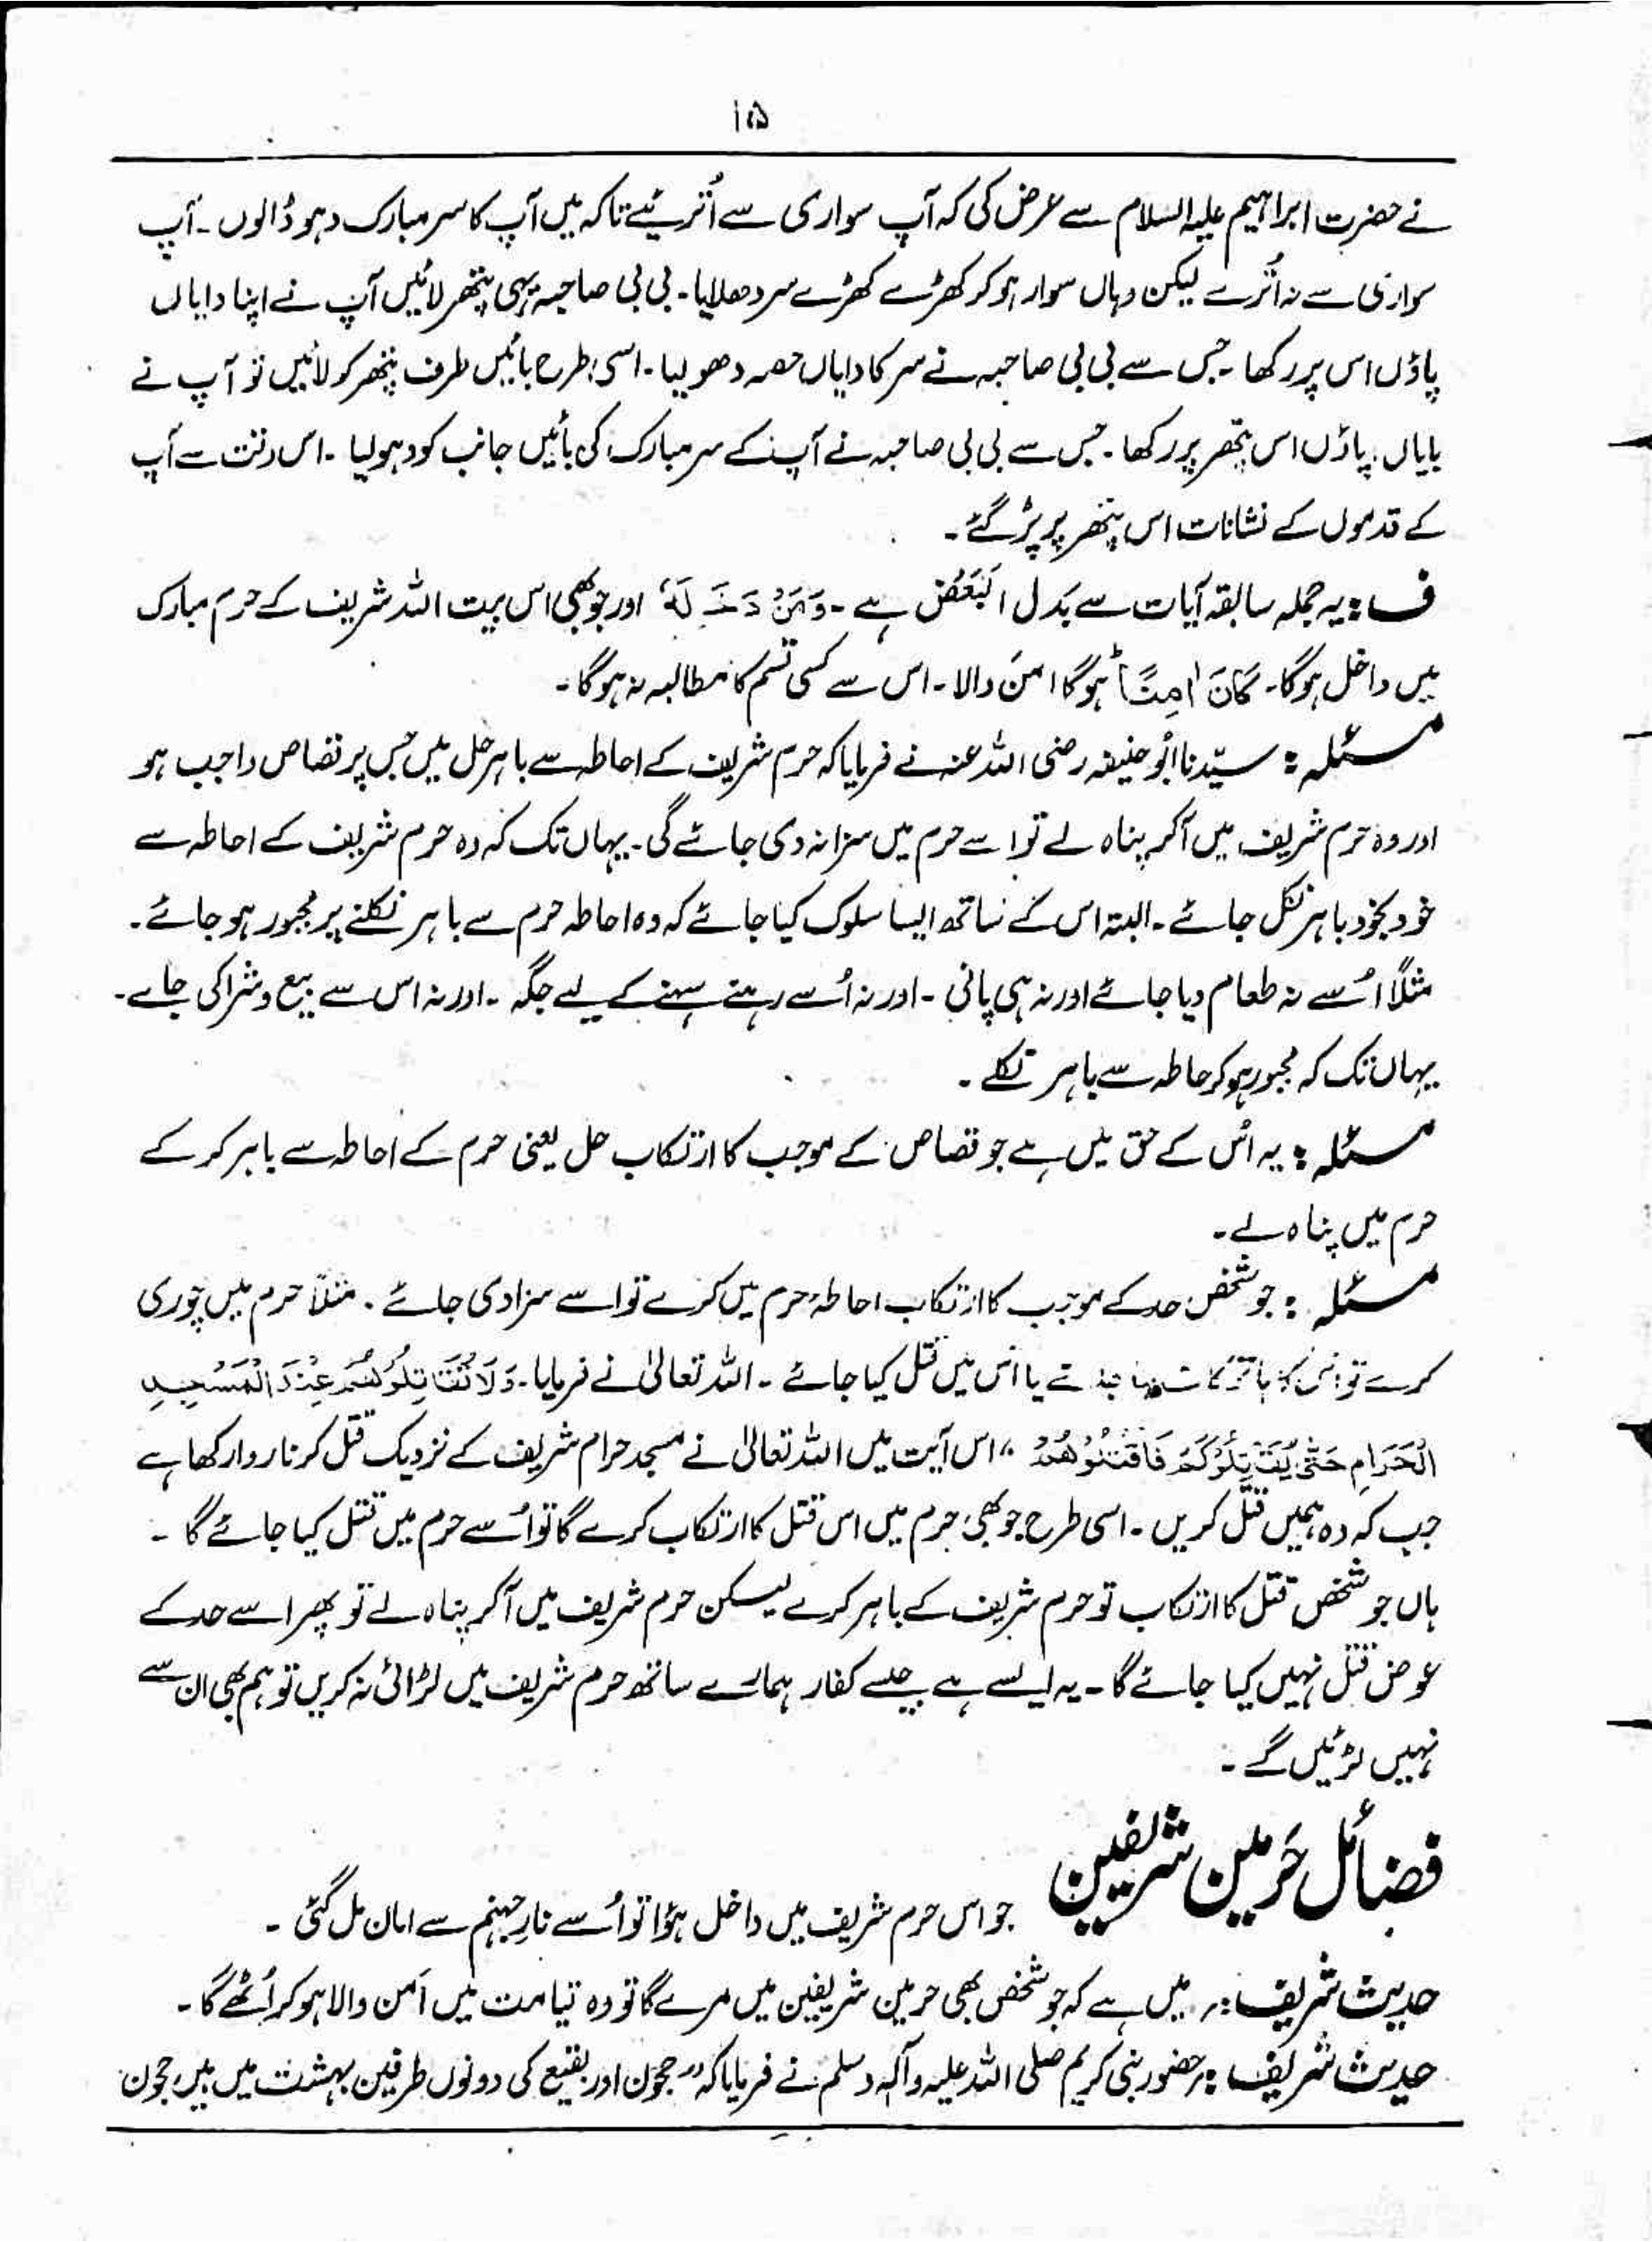 ۱۵
نے حضرت ابراہیم علیہ السلام سے عرض کی کہ آپ سواری سے اُتریئے تاکہ میں آپ کا سر مبارک دہو ڈالوں۔ آپ
سواری سے نہ اُترے لیکن وہاں سوار ہو کر کھڑے کھڑے سر دھلایا۔ بی بی صاحبہ یہی پتھر لائیں آپ نے اپنا دایاں
پاؤں اس پر رکھا ۔ جس سے بی بی صاحبہ نے سر کا دایاں حصہ دھو لیا۔ اسی طرح بائیں طرف پتھر کو لائیں تو آپ نے
بایاں پاؤں اس پتھر پر رکھا ۔ جس سے بی بی صاحبہ نے آپ کے سر مبارک کی بائیں جانب کو دہو لیا ۔ اس وقت سے آپ
کے قدموں کے نشانات اس پتھر پر پڑ گئے ۔
ف : یہ جملہ سابقہ آیات سے بَدل الْبَعْض ہے ۔ وَمَنْ دَخَلَهٗ اور جو بھی اس بیت اللہ شریف کے حرم مبارک
میں داخل ہوگا۔ كَانَ اٰمِنًا ہوگا امن والا۔ اس سے کسی قسم کا مطالبہ نہ ہوگا۔
مسئلہ : سیّدنا ابُو حنیفہ رضی اللہ عنہ نے فرمایا کہ حرم شریف کے احاطہ سے باہر حل میں جس پر قصاص واجب ہو
اور وہ حرم شریف میں آکر پناہ لے تو اسے حرم میں سزا نہ دی جائے گی۔ یہاں تک کہ وہ حرم شریف کے احاطہ سے
خود بخود باہر نکل جائے ۔ البتہ اس کے ساتھ ایسا سلوک کیا جائے کہ وہ احاطہ حرم سے باہر نکلنے پر مجبور ہو جائے۔
مثلاً اُسے نہ طعام دیا جائے اور نہ ہی پانی ۔ اور نہ اُسے رہنے سہنے کے لیے جگہ ۔ اور نہ اس سے بیع و شرا کی جاے۔
یہاں تک کہ مجبور ہو کر حاطہ سے باہر نکلے ۔
مسئلہ : یہ اُس کے حق میں ہے جو قصاص کے موجب کا ارتکاب حل یعنی حرم کے احاطہ سے باہر کر کے
حرم میں پناہ لے ۔
مسئلہ : جو شخص حد کے موجب کا ارتکاب احاطۂ حرم میں کرے تو اسے سزا دی جائے ۔ مثلاً حرم میں چوری
کرے تو اس کا ہاتھ کاٹا جائے یا اُس میں قتل کیا جائے ۔ اللہ تعالیٰ نے فرمایا۔ وَلَا تُقَاتِلُوْهُمْ عِنْدَ الْمَسْجِدِ
الْحَرَامِ حَتّٰى يُقٰتِلُوْكُمْ فَاقْتُلُوْهُمْ ‘‘ اس آیت میں اللہ تعالیٰ نے مسجد حرام شریف کے نزدیک قتل کرنا روا رکھا ہے
جب کہ وہ ہمیں قتل کریں ۔ اسی طرح جو بھی حرم میں اس قتل کا ارتکاب کرے گا تو اُسے حرم میں قتل کیا جائے گا ۔
ہاں جو شخص قتل کا ارتکاب تو حرم شریف کے باہر کرے لیکن حرم شریف میں آکر پناہ لے تو پھر اسے حد کے
عوض قتل نہیں کیا جائے گا ۔ یہ ایسے ہے جیسے کفار ہمارے ساتھ حرم شریف میں لڑائی نہ کریں تو ہم بھی ان سے
نہیں لڑئیں گے ۔
فضائل حَرمین شریفین
جو اس حرم شریف میں داخل ہؤا تو اُسے نارِ جہنم سے امان مل گئی ۔
حدیث شریف : میں ہے کہ جو شخص بھی حرمین شریفین میں مرے گا تو وہ قیامت میں اَمن والا ہو کر اُٹھے گا ۔
حدیث شریف : حضور نبی کریم صلی اللہ علیہ وآلہ وسلم نے فرمایا کہ ’’ حجون اور بقیع کی دونوں طرفین بہشت میں ہیں حجون